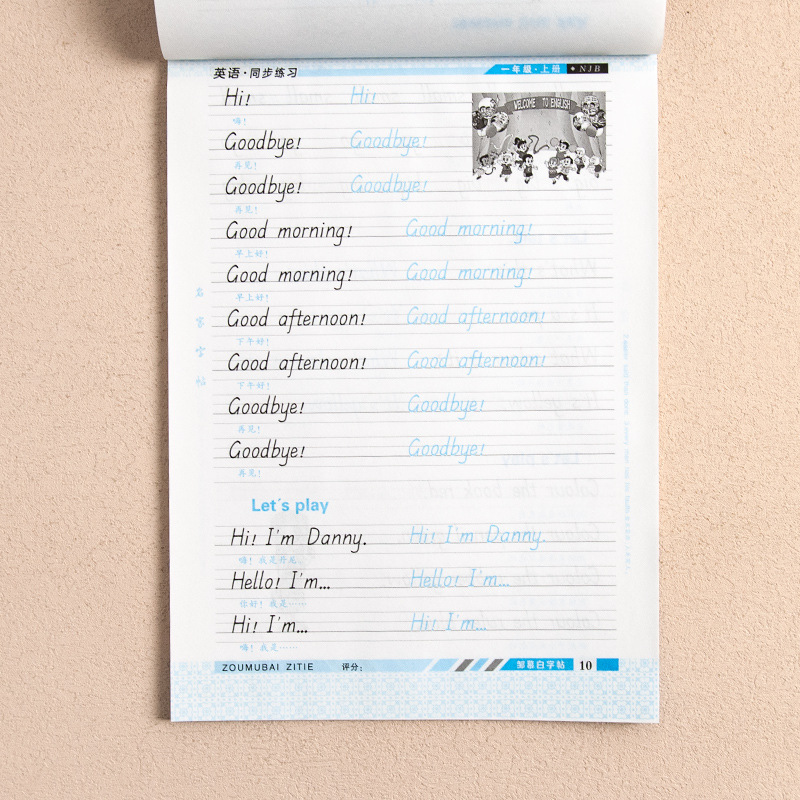 英语·同步练习 一年级·上册 ◆NJB
Hi! Hi!
嗨!
WELCOME TO ENGLISH
Goodbye! Goodbye!
再见!
Goodbye! Goodbye!
再见!
Good morning! Good morning!
早上好!
Good morning! Good morning!
早上好!
Good afternoon! Good afternoon!
下午好!
Good afternoon! Good afternoon!
下午好!
Goodbye! Goodbye!
再见!
Goodbye! Goodbye!
再见!
Let's play
Hi! I'm Danny. Hi! I'm Danny.
嗨! 我是丹尼.
Hello! I'm... Hello! I'm...
你好! 我是……
Hi! I'm... Hi! I'm...
嗨! 我是……
名家字帖
ZOUMUBAI ZITIE 评分: 邹慕白字帖 10